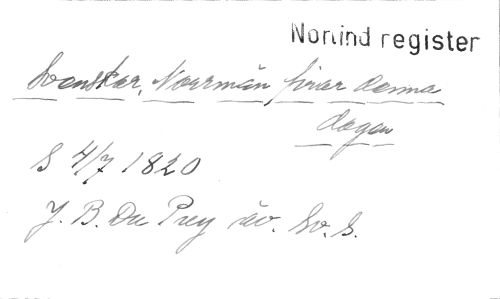 Norlind register
Svenskar, Norrmän firar denna
dagen
S 4/7 1820
J. B. Du Puy öv. Sv. S.